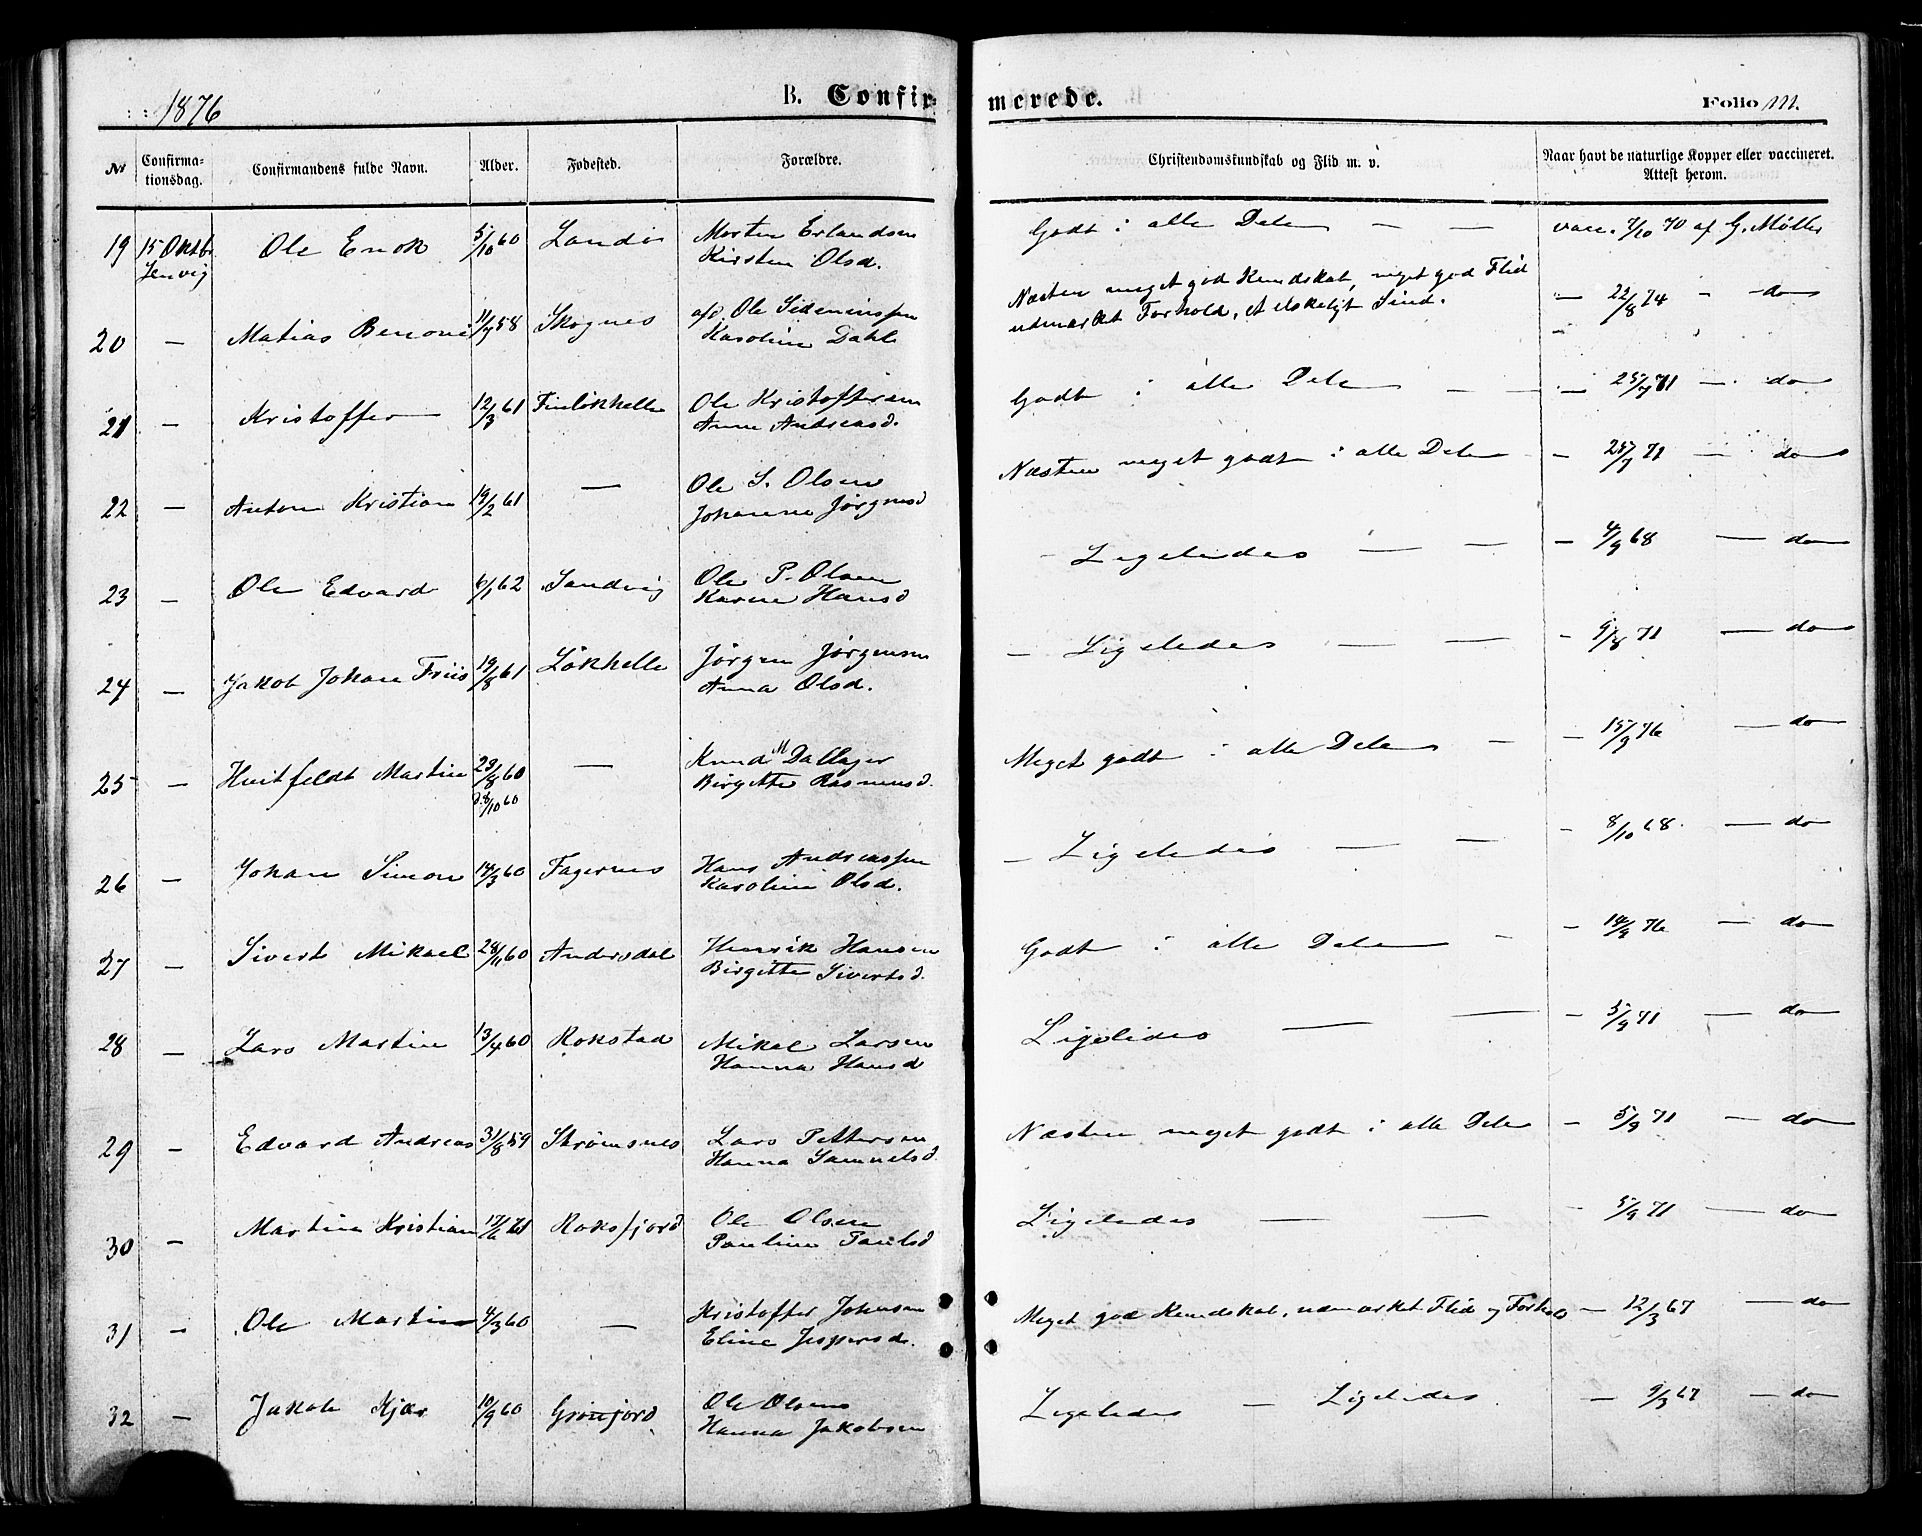 1876
B. Confirmerede.
Folio 111.
Nr
Confirmationsdag.
Confirmandens fulde Navn.
Alder.
Fødested.
Forældre.
Christendomskundskab og Flid m. v.
Naar havt de naturlige Kopper eller vaccineret. Attest herom.
19 15 Oktbr Ole Enok 5/10 60 Morten Erlandsen Godt i alle Dele — — vacc. 7/10 70 af G. Møller
Kirsten Olsd.
20 — Matias Benoni 11/9 58 Skognes afd. Ole Sideniussen Næsten meget god Kundskab, meget god Flid — 22/8 74 — do
Karoline Dahl udmærket Forhold, et elskeligt Sind.
21 — Kristoffer 12/3 61 Finløkhelle Ole Kristoffersen Godt i alle Dele — — — 25/7 71 — do
Anne Andreasd.
22 — Anton Kristian 19/2 61 — Ole S. Olsen Næsten meget godt i alle Dele — 25/7 71 — do
Johanne Jørgensd
23 — Ole Edvard 6/1 62 Sandvig Ole P. Olsen — Ligeledes — — — 4/9 68 — do
Karen Hansd
24 — Jakob Johan Friis 19/8 61 Løkhelle Jørgen Jørgensen — Ligeledes — — — 9/8 71 — do
Anna Olsd.
25 — Hvitfeldt Martin 23/8 60 — Knud M Dallager Meget godt i alle Dele — — 15/9 76 — do
d. 8/10 60 Birgitte Rasmusd.
26 — Johan Simon 14/3 60 Fagernes Hans Andreassen — Ligeledes — — — 8/10 68. — do
Karoline Olsd.
27 — Sivert Mikael 28/11 60 Andersdal Henrik Hansen Godt i alle Dele — — 14/9 76 — do
Birgitte Sivertsd.
28 — Lars Martin 13/4 60 Rokstad Mikal Larsen Ligeledes — — — 5/9 71 — do
Hanna Hansd
29 — Edvard Andreas 31/8 59 Strømsnes Lars Pettersen Næsten meget godt i alle Dele — 5/9 71 — do
Hanna Samuelsd.
30 — Martin Kristian 17/6 61 Roksfjord Ole Olsen Ligeledes — — — 5/9 71 — do
Pauline Paulsd
31 — Ole Martin 4/3 60 — Kristoffer Johnsen Meget god Kundskab, udmærket Flid og Forhold — 12/3 67 — do
Eline Jespersd.
32 — Jakob Kjær 10/9 60 Grønjord Ole Olsen Ligeledes — Ligeledes — 9/3 67 — do
Hanna Jakobsen